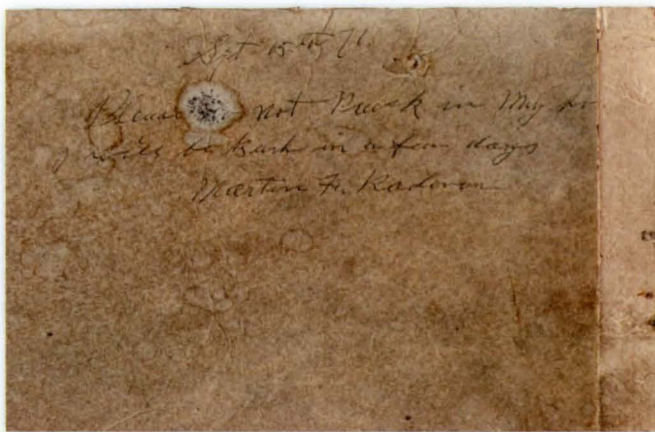 Sept 15th 71.
Please not Break in My
I will be Back in a few days
Martin F. Radovan